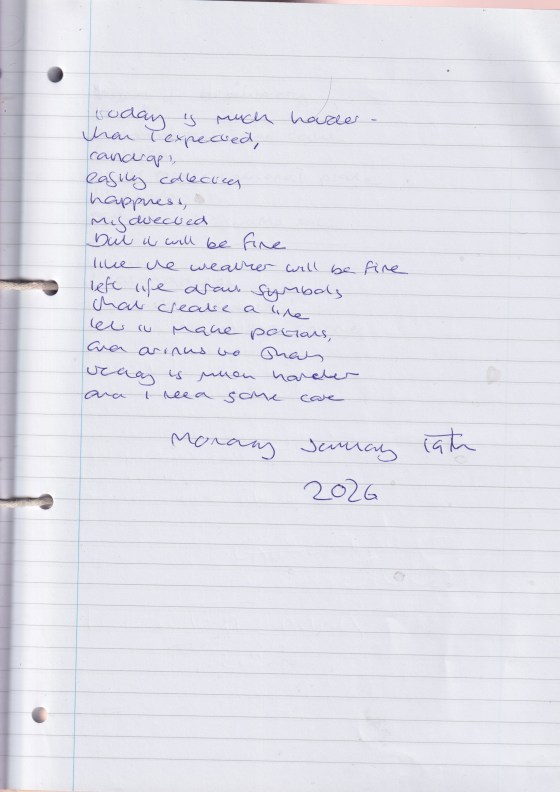 today is much harder -
than I expected,
raindrops,
easily collecting
happiness,
misdirected
but it will be fine
like the weather will be fine
let life draw symbols
that create a line
let it make patterns,
and drinks to
today is much harder
and I need some care
Monday January 19th
2026